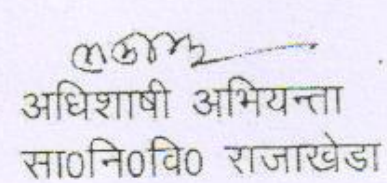 अधिशाषी अभियन्ता
सा०नि०वि० राजाखेडा